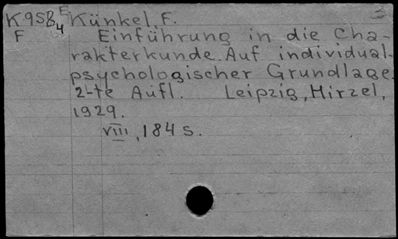 K95B4E Künkel, F.
F Einführung in die Cha-
rakterkunde. Auf individual-
psychologischer Grundlage.
2-te Aufl. Leipzig, Hirzel,
1929.
VIII, 184 s.